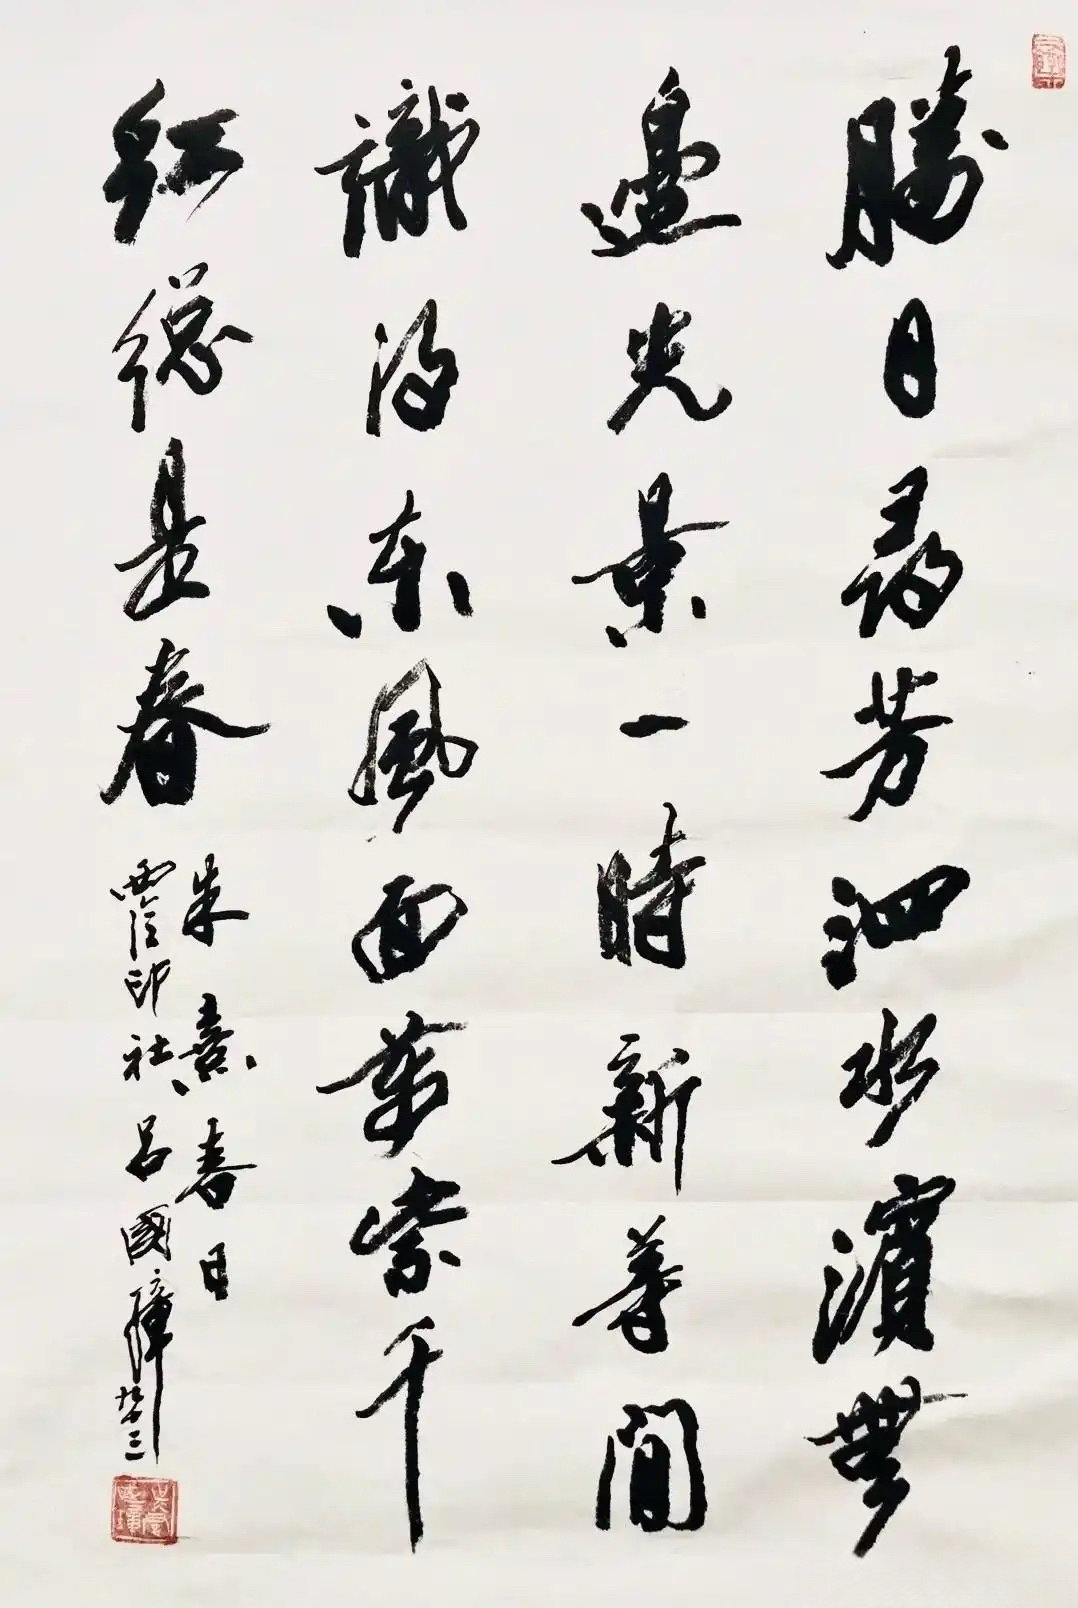 勝日尋芳泗水濱無
邊光景一時新等閒
識得東風面萬紫千
紅總是春
朱熹春日
西泠印社呂國璋